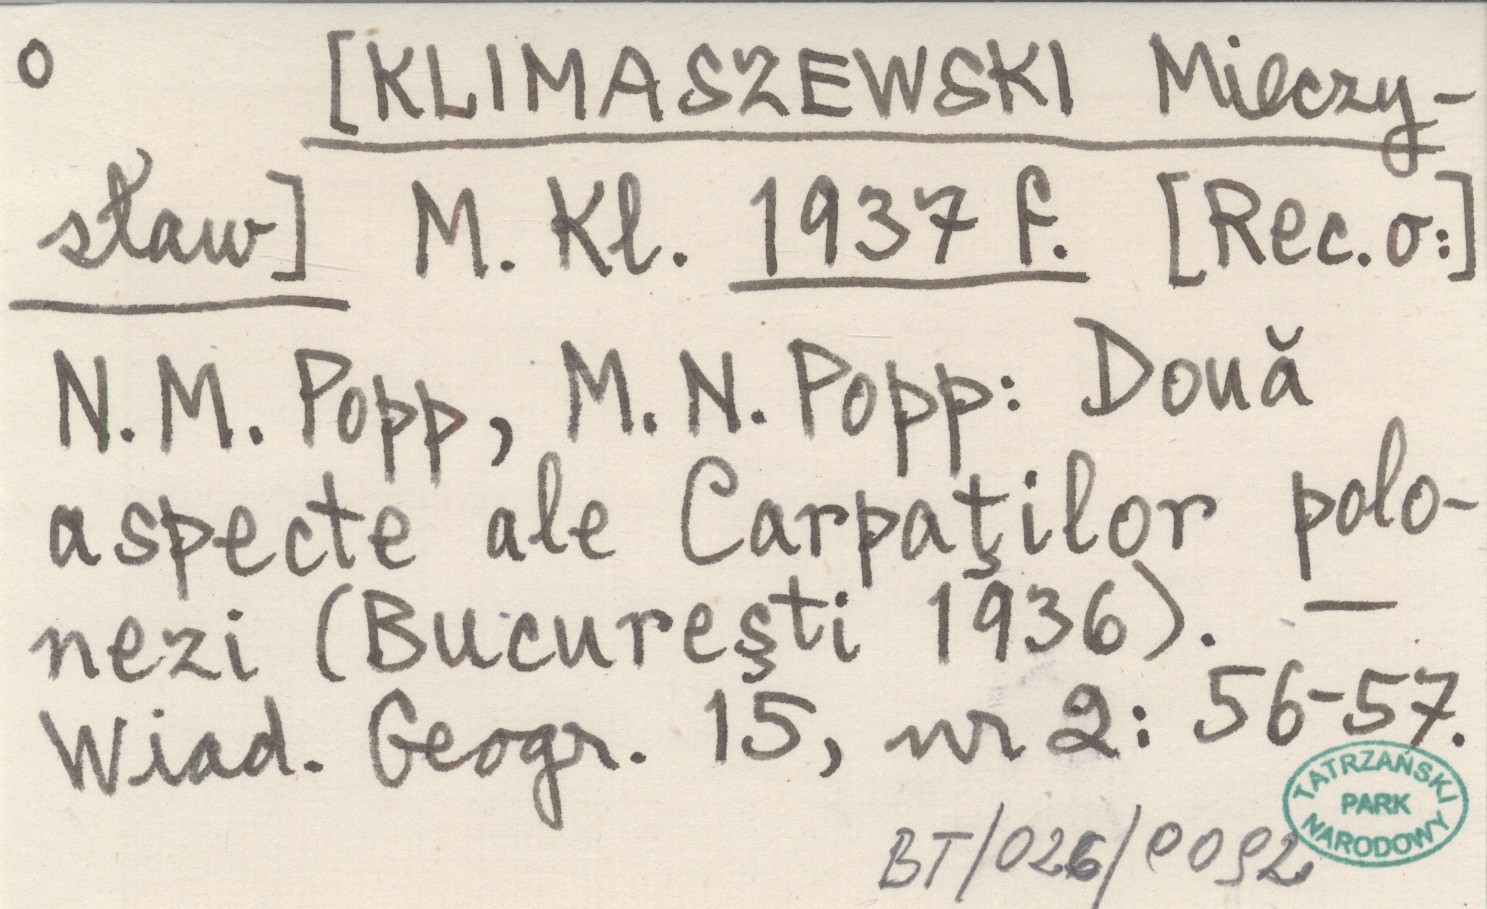 o [KLIMASZEWSKI Mieczy-
sław] M. Kl. 1937 f. [Rec. o:]
N. M. Popp, M. N. Popp: Două
aspecte ale Carpaţilor polo-
nezi (Bucureşti 1936). —
Wiad. Geogr. 15, nr 2: 56-57.
TATRZAŃSKI
PARK
NARODOWY
BT/026/0092